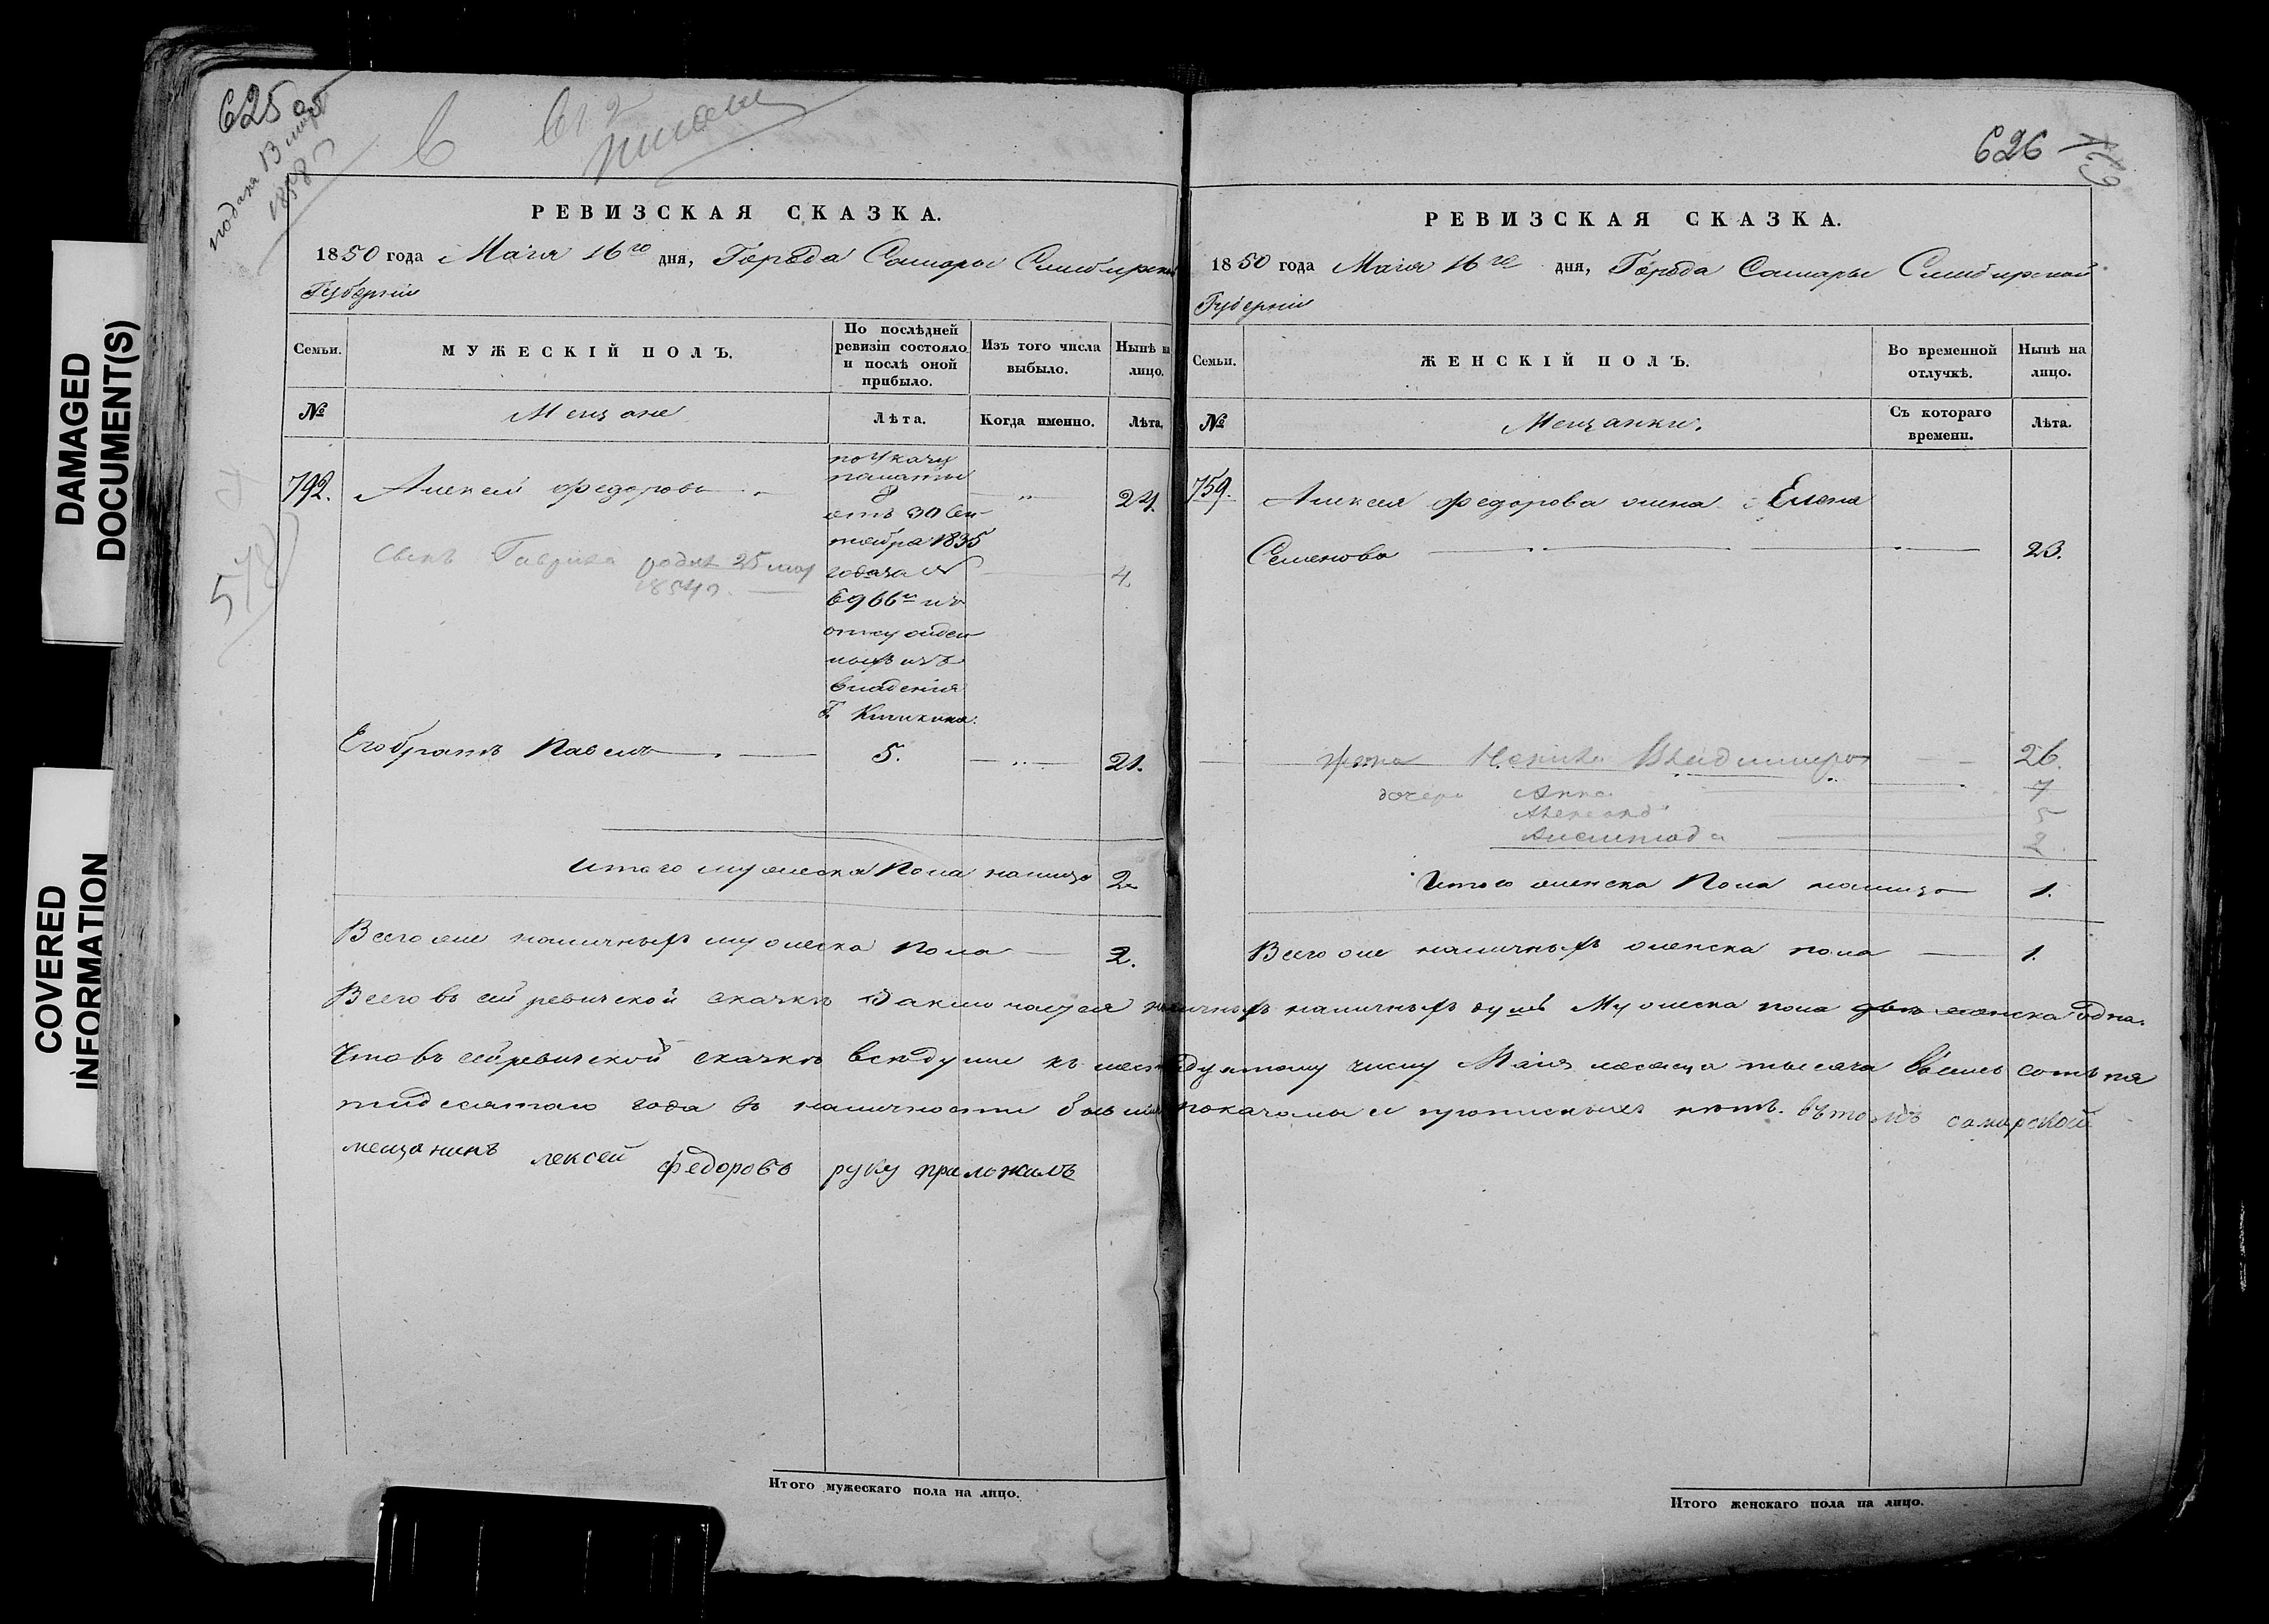 DAMAGED
DOCUMENT(S)
COVERED
INFORMATION
625 об
подана 13 мар
1858
РЕВИЗСКАЯ СКАЗКА.
1850 года Маія 16го дня, Города Самары Симбирской
Губерніи
Семьи.
МУЖЕСКІЙ ПОЛЪ.
По послѣдней
ревизіи состояло
и послѣ оной
прибыло.
Изъ того числа
выбыло.
Нынѣ на
лицо.
№
Мещане
Лѣта.
Когда именно.
Лѣта.
792.
Алексей Федоровъ
по указу
палаты
отъ 30 Сен
тября 1835
года за №
6966м изъ
отсужден
ныхъ изъ
владения
Г.
24.
сынъ Гаврила родил 25 мар
1854 г.
4.
578
Его братъ Павелъ
5.
21.
Итого мужеска Пола налицо 2
Всего же наличныхъ мужеска Пола 2.
626
РЕВИЗСКАЯ СКАЗКА.
1850 года Маія 16го дня, Города Самары Симбирской
Губерніи
Семьи.
ЖЕНСКІЙ ПОЛЪ.
Во временной
отлучкѣ.
Нынѣ на
лицо.
№
Мещанки.
Съ котораго
времени.
Лѣта.
759.
Алексея Федорова жена Елена
Семенова
23.
жена Владимиров
26.
дочери Анна
7
Александ
5
2.
Итого женска Пола налицо 1.
Всего же наличныхъ женска пола 1.
Всего въ сей ревиской скаскѣ Заключается наличныхъ душъ Мужеска пола две женска одна.
Что въ сей ревиской скаскѣ все души къ шестнадцатому числу Маія месяца тысяча восемь сотъ пя
тидесятаго года въ наличности бывшия показаны и прописныхъ нѣтъ. въ томъ самарской
мещанинъ лексей Федоровъ руку приложилъ
Итого мужескаго пола на лицо.
Итого женскаго пола на лицо.